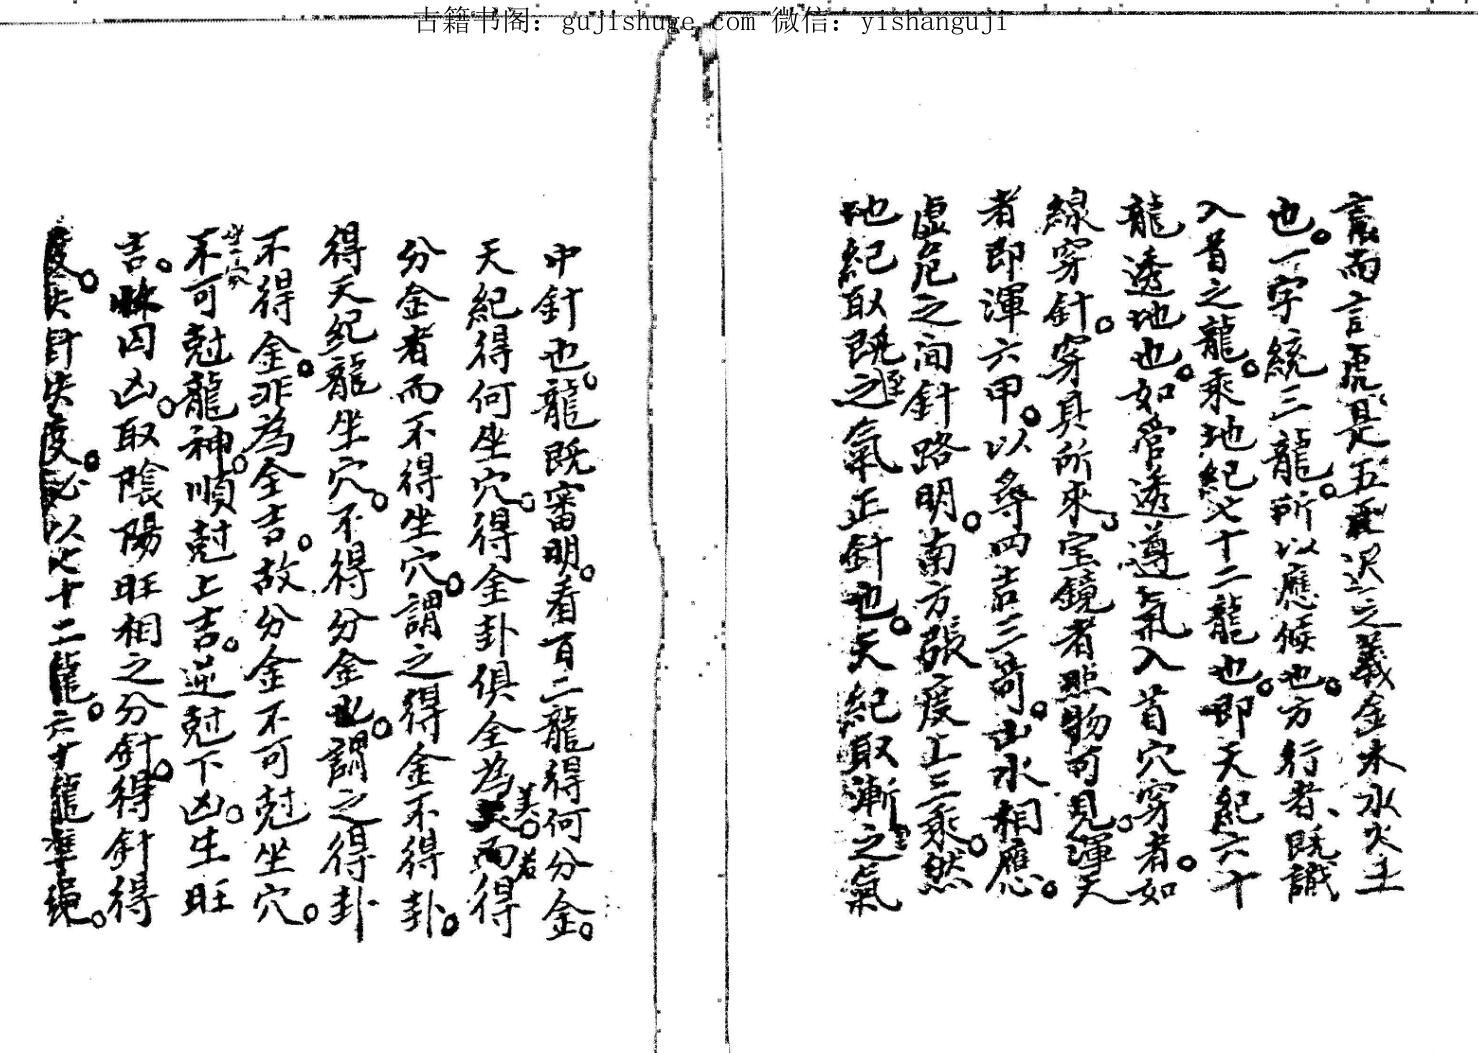 古籍书阁：gujishuge.com 微信：yishanguji
言而言虎是五零沢之義金木水火土
也。一字統三龍。所以應候也。方行者、既識
入首之龍。乘地紀七十二龍也。即天紀六十
龍透地也。如管透遵氣入首穴穿者。如
線穿針。穿具所來。宝鏡者照物可見。渾天
者即渾六甲。以尋四吉三奇。山水相應。
虛危之间針路明。南方張度上三乘。然
地紀取既至之氣正針也。天紀取漸至之氣
中針也。龍既審明。看百二龍得何分金。
天紀得何坐穴。得金卦俱全為美。而若得
分金者而不得坐穴。謂之得金不得卦。
得天紀龍坐穴。不得分金也。謂之得卦
不得金。非為全吉。故分金不可尅坐穴。
坐穴不可尅龍神。順尅上吉。逆尅下凶。生旺
吉。休囚凶。取陰陽旺相之分針。得針得
度。失針失度。必以七十二龍。六十龍準繩。